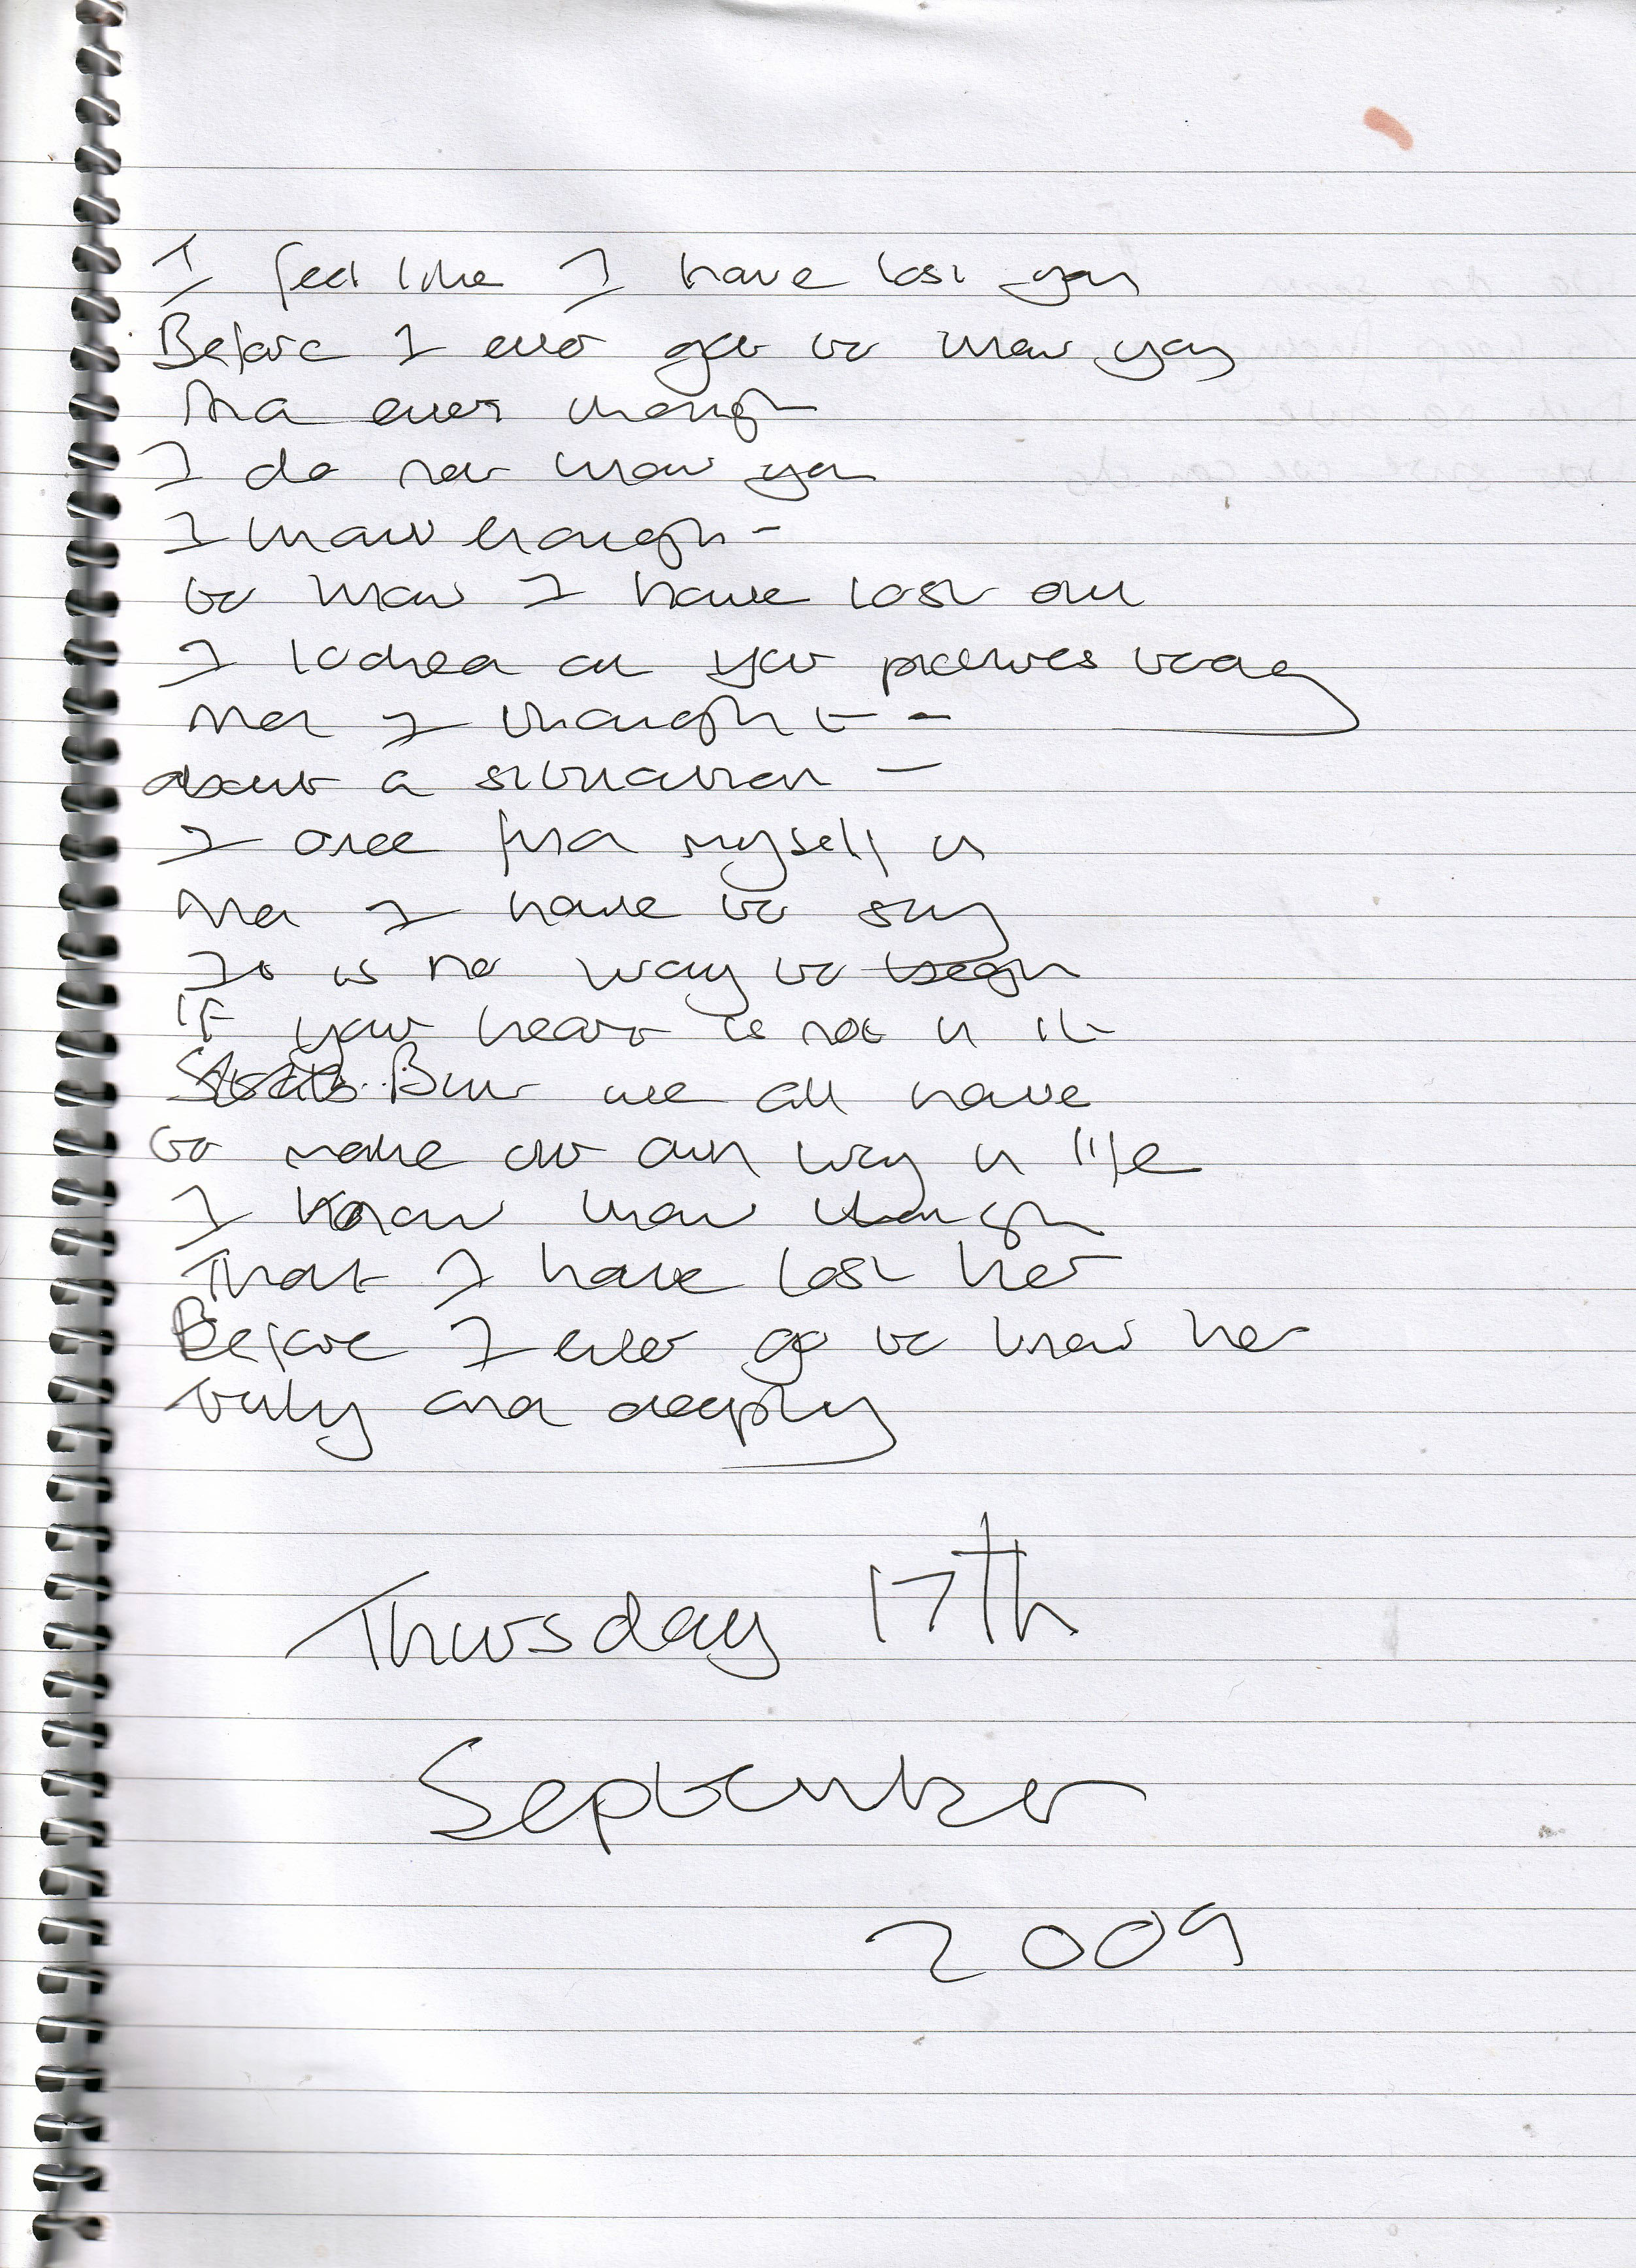 I feel like I have lost you
Before I ever got to know you
And even though
I do not know you
I know enough -
to know I have lost out
I looked at your pictures today
And I thought -
about a situation -
I once find myself in
And I have to say
It is no way to begin
If your heart is not in it
But we all have
to make our own way in life
I know know though
That I have lost her
Before I ever go to know her
truly and deeply
Thursday 17th
September
2009